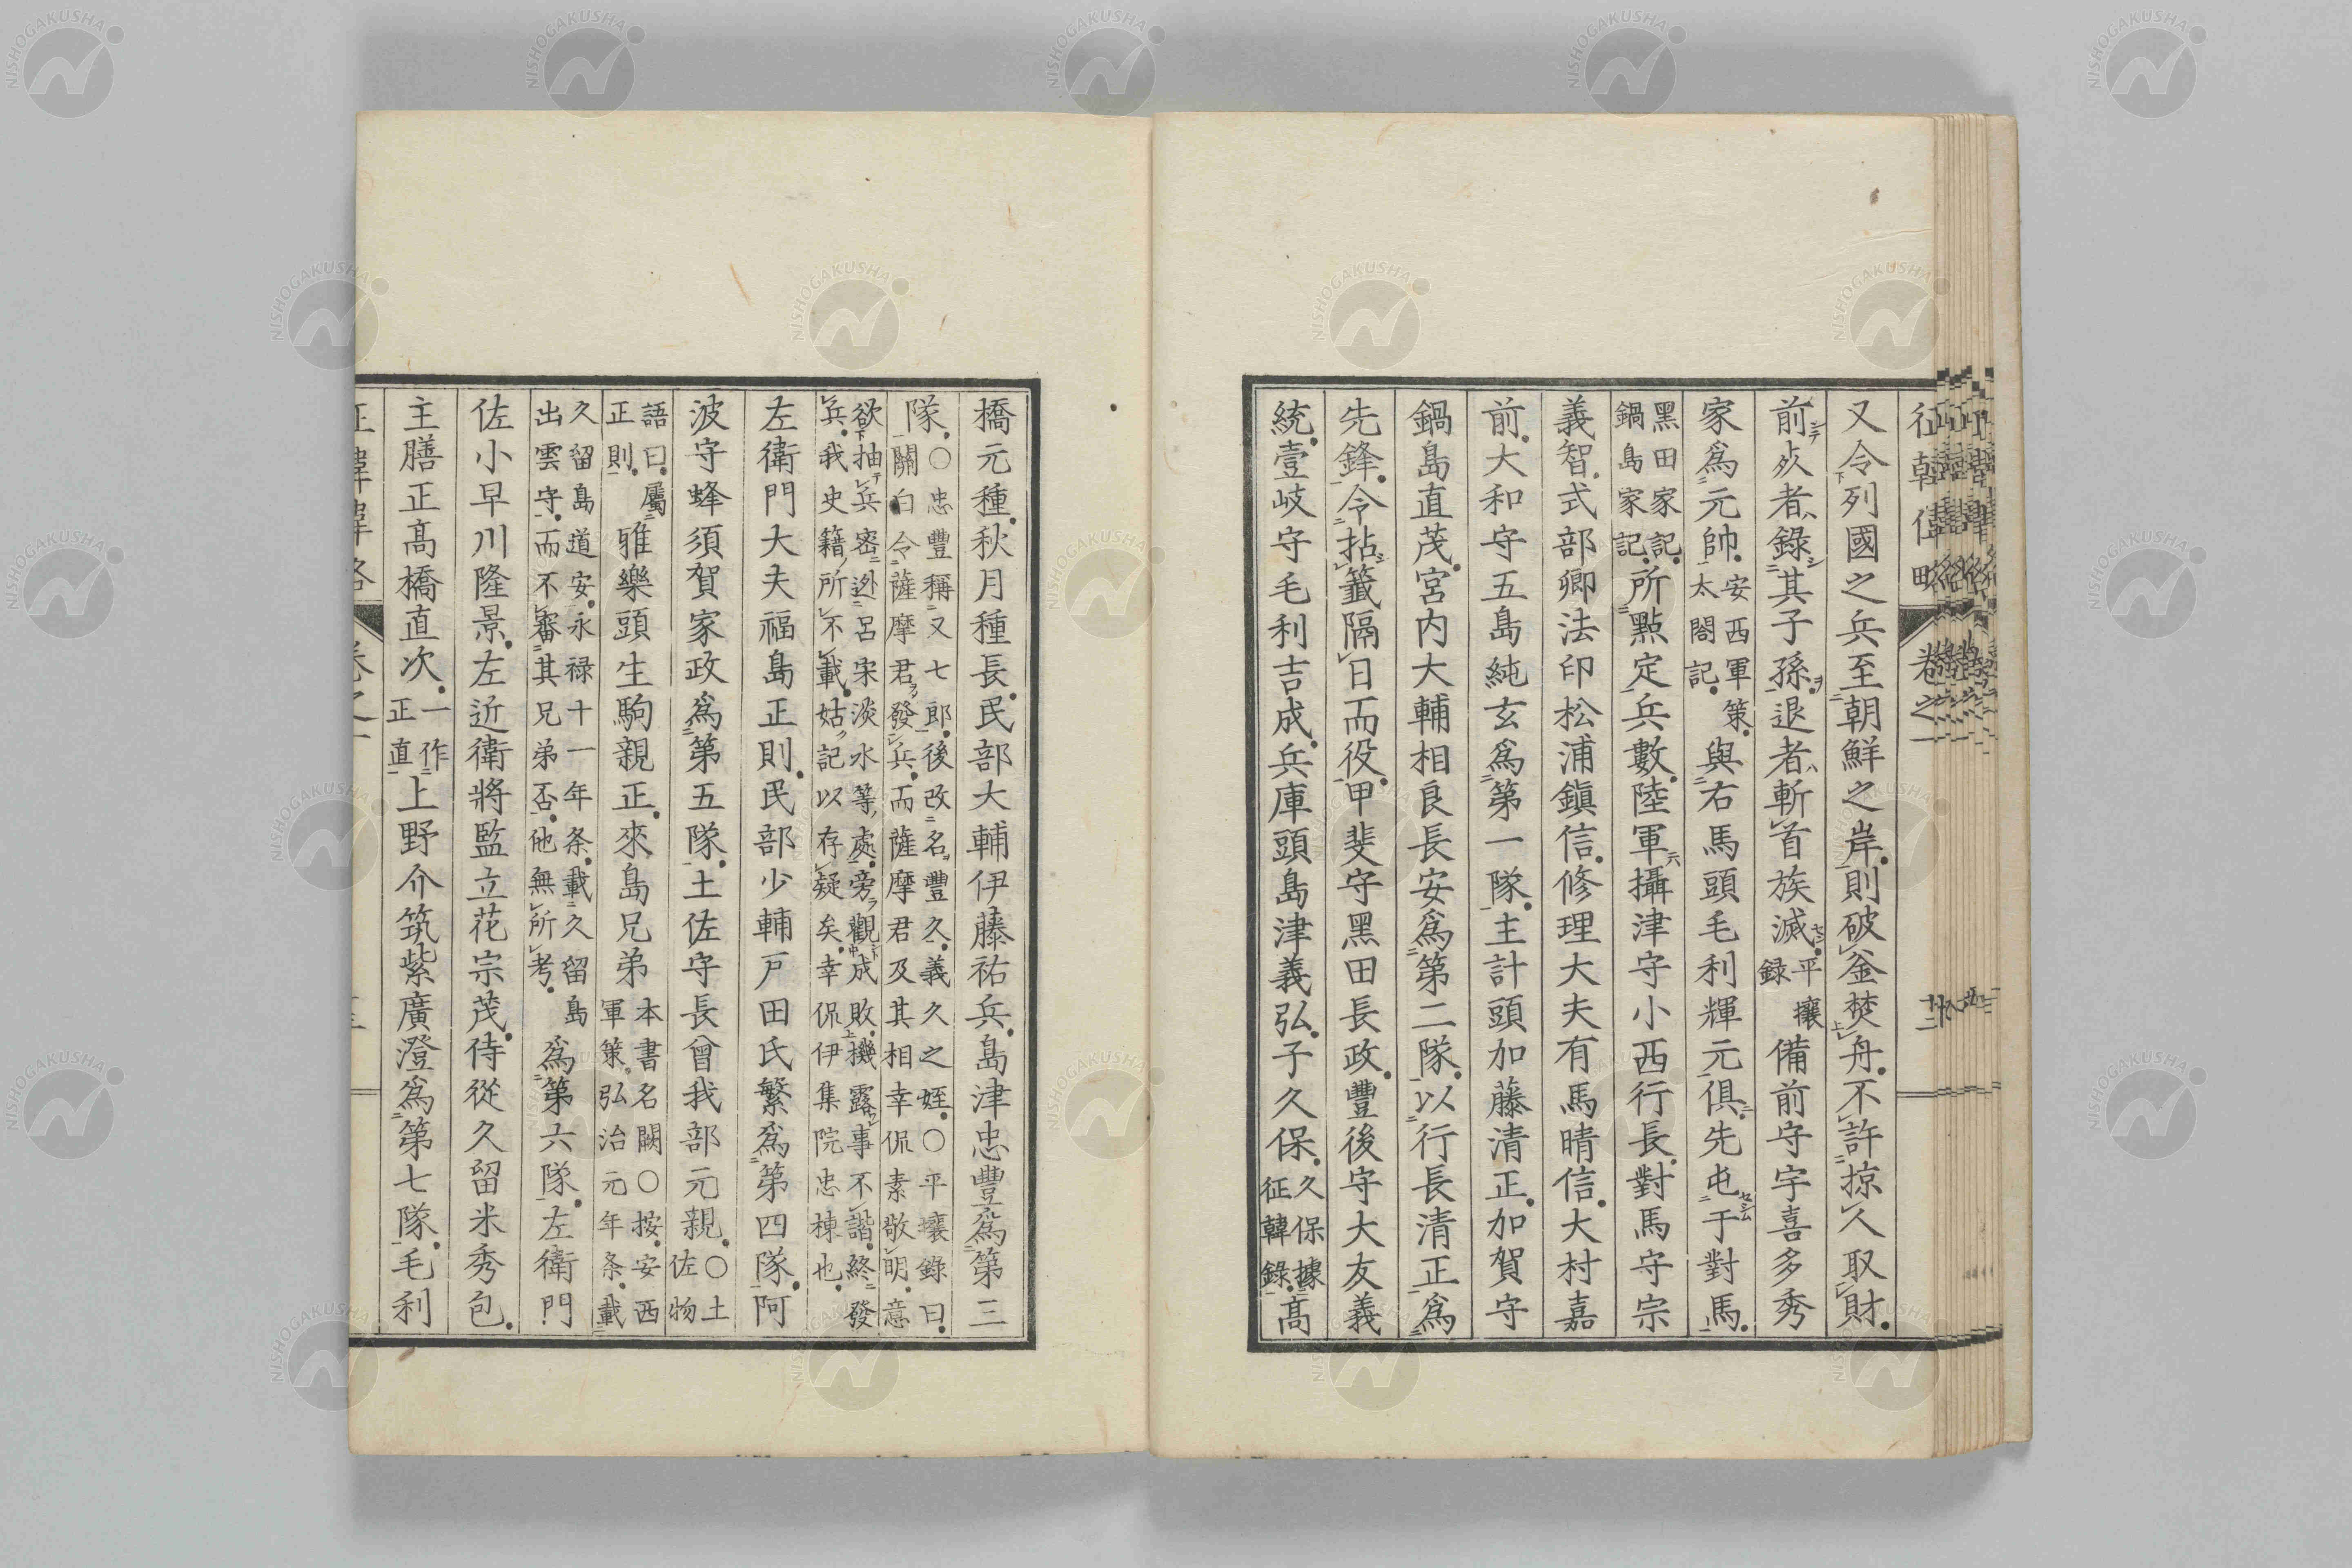 征韓偉畧 卷之一 十二
又令列國之兵至朝鮮之岸則破釜焚舟不許掠人取財
前死者錄其子孫退者斬首族滅平壤錄備前守宇喜多秀
家爲元帥安西軍策太閤記與右馬頭毛利輝元俱先屯于對馬
黑田家記鍋島家記所點定兵數陸軍攝津守小西行長對馬守宗
義智式部卿法印松浦鎭信修理大夫有馬晴信大村嘉
前大和守五島純玄爲第一隊主計頭加藤清正加賀守
鍋島直茂宮内大輔相良長安爲第二隊以行長清正爲
先鋒令拈籤隔日而役甲斐守黑田長政豐後守大友義
統壹岐守毛利吉成兵庫頭島津義弘子久保久保據征韓錄髙
橋元種秋月種長民部大輔伊藤祐兵島津忠豐爲第三
隊○忠豐稱又七郎後改名豐久義久之姪○平壤錄曰關白令薩摩君發兵而薩摩君及其相幸侃素敬明意
欲抽兵密迯呂宋淡水等處旁觀成敗機露事不諧終發兵我史籍所不載姑記以存疑矣幸侃伊集院忠棟也
左衛門大夫福島正則民部少輔戸田氏繁爲第四隊阿
波守蜂須賀家政爲第五隊土佐守長曾我部元親○土佐物
語曰屬正則雅樂頭生駒親正來島兄弟本書名闕○按安西軍策弘治元年条載
久留島道安永禄十一年条載久留島出雲守而不審其兄弟否他無所考爲第六隊左衛門
佐小早川隆景左近衛將監立花宗茂侍從久留米秀包
主膳正髙橋直次一作正直上野介筑紫廣澄爲第七隊毛利